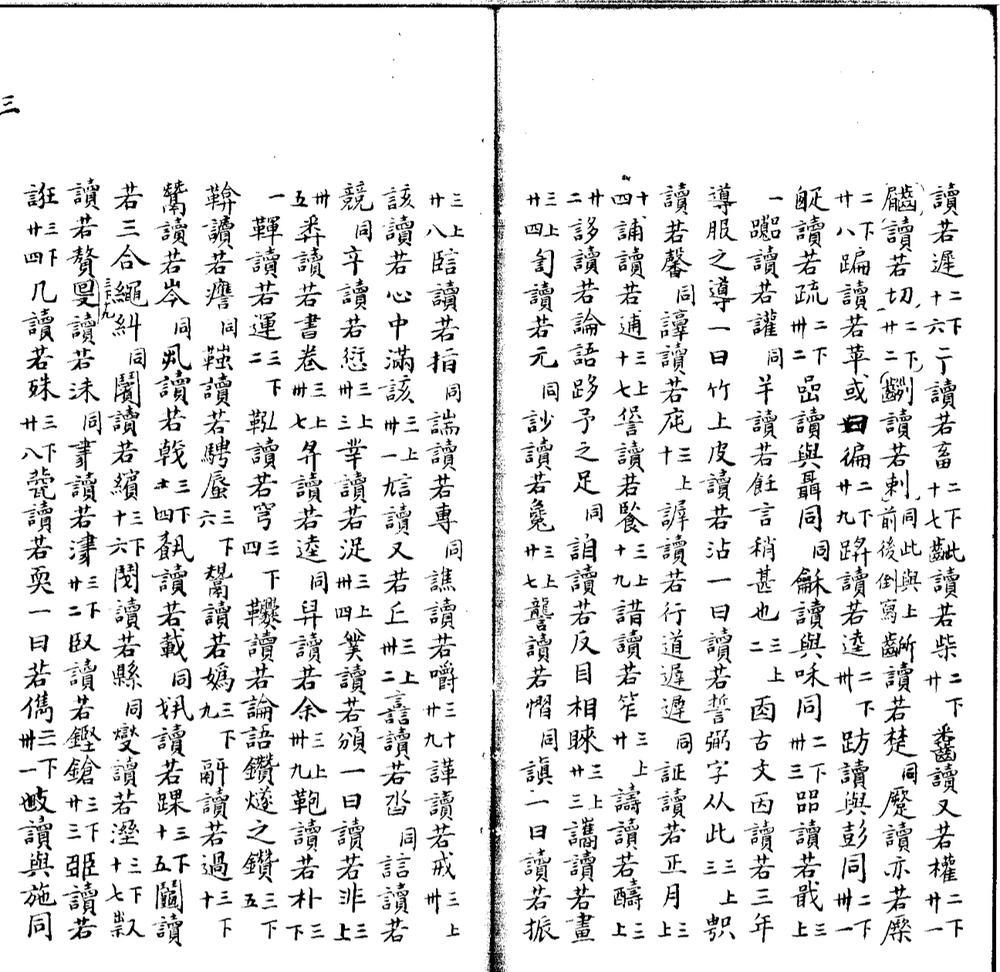 讀若遲十六二下亍讀若畜十七二下齜讀若柴廿二下䶥讀又若權廿一二下
讀若切廿二二下讀若剌同此與上前後倒寫齭讀若楚同蹷讀亦若橜
廿八二下蹁讀若苹或曰徧廿九二下讀若逵卅二下趽讀與彭同卅一二下
𤴙讀若疏卅二二下喦讀與聶同同龢讀與咊同卅三二下㗊讀若戢三上
一讀若讙同𢆉讀若飪言稍甚也二三上㐁古文㐁讀若三年
導服之導一曰竹上皮讀若沾一曰讀若誓弼字从此三三上
讀若馨同讀若庉十三上謘讀若行道遲遲同証讀若正月三上
十四誧讀若逋十七三上讀若餐十九三上諎讀若笮廿三上譸讀若醻三上
廿二誃讀若論語跢予之足同讀若反目相睞廿三三上讗讀若畫
廿四三上訇讀若元同訬讀若毚廿七讋讀若慴同謓一曰讀若振
廿八三上讀若指同諯讀若專同譙讀若嚼廿九三十諽讀若戒卅三上
該讀若心中滿該卅一三上訄讀又若丘卅二三上譶讀若沓同誩讀若
競同䇂讀若愆卅三三上丵讀若浞卅四三上菐讀若頒一曰讀若非三上
卅五𢍏讀若書卷卅七三上讀若逵同舁讀若余卅九三上鞄讀若朴三下
一韗讀若運二三下讀若穹四三下讀若論語鑽燧之鑽五三下
鞥讀若譍同讀若騁蜃六三下鬹讀若嬀九三下䰛讀若過十三下
鬵讀若岑同丮讀若戟十四三下讀若載同讀若踝十五三下鬮讀
若三合繩糾同讀若繽十六三下讀若縣同燮讀若溼十七三下
讀若贅十九三下讀若沬同讀若津廿二三下臤讀若鏗鎗廿三三下讀若
誑廿四三下几讀若殊廿八三下讀若耎一曰若儁卅一三下讀與施同
三